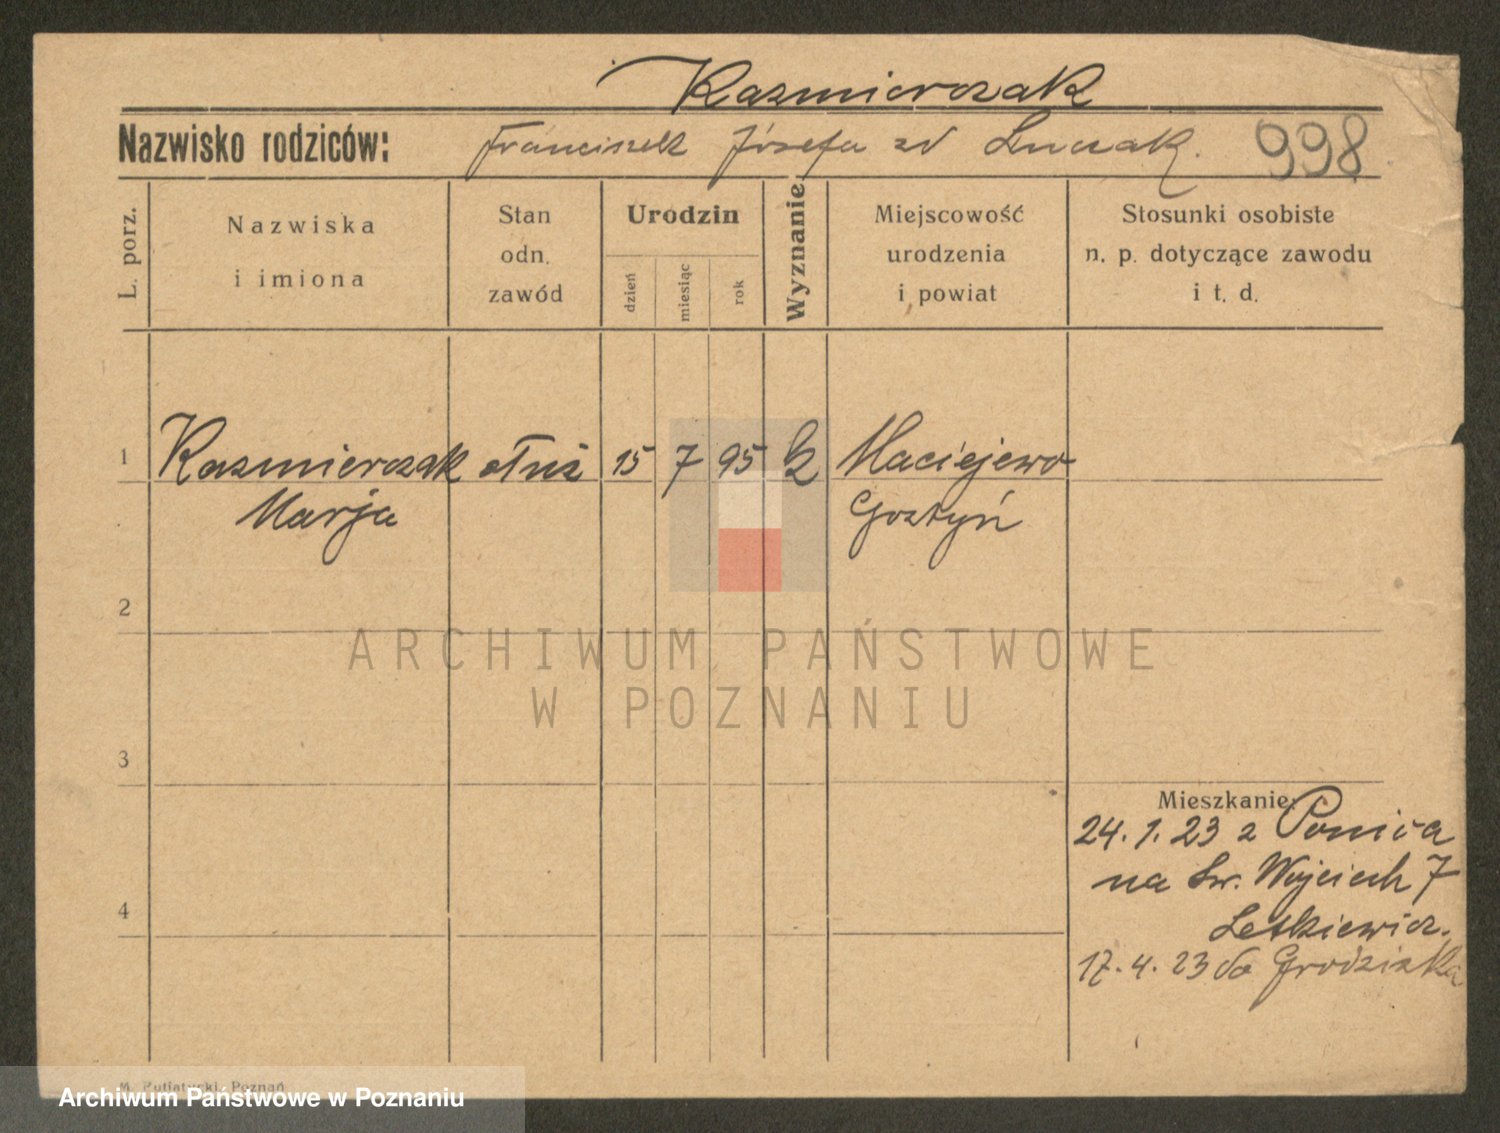 Kazmierczak
Nazwisko rodziców: Franciszek Józefa zd Luczak. 998
L. porz.
Nazwiska
i imiona
Stan
odn.
zawód
Urodzin
dzień
miesiąc
rok
Wyznanie
Miejscowość
urodzenia
i powiat
Stosunki osobiste
n. p. dotyczące zawodu
i t. d.
1 Kazmierczak służ 15 7 95 k Maciejewo
Marja Gostyń
2
ARCHIWUM PAŃSTWOWE
W POZNANIU
3
Mieszkanie:
24.1.23 z Ponica
na Św. Wojciech 7
4
Letkiewicz.
17.4.23 do Grodziska
M. Putiatycki, Poznań
Archiwum Państwowe w Poznaniu